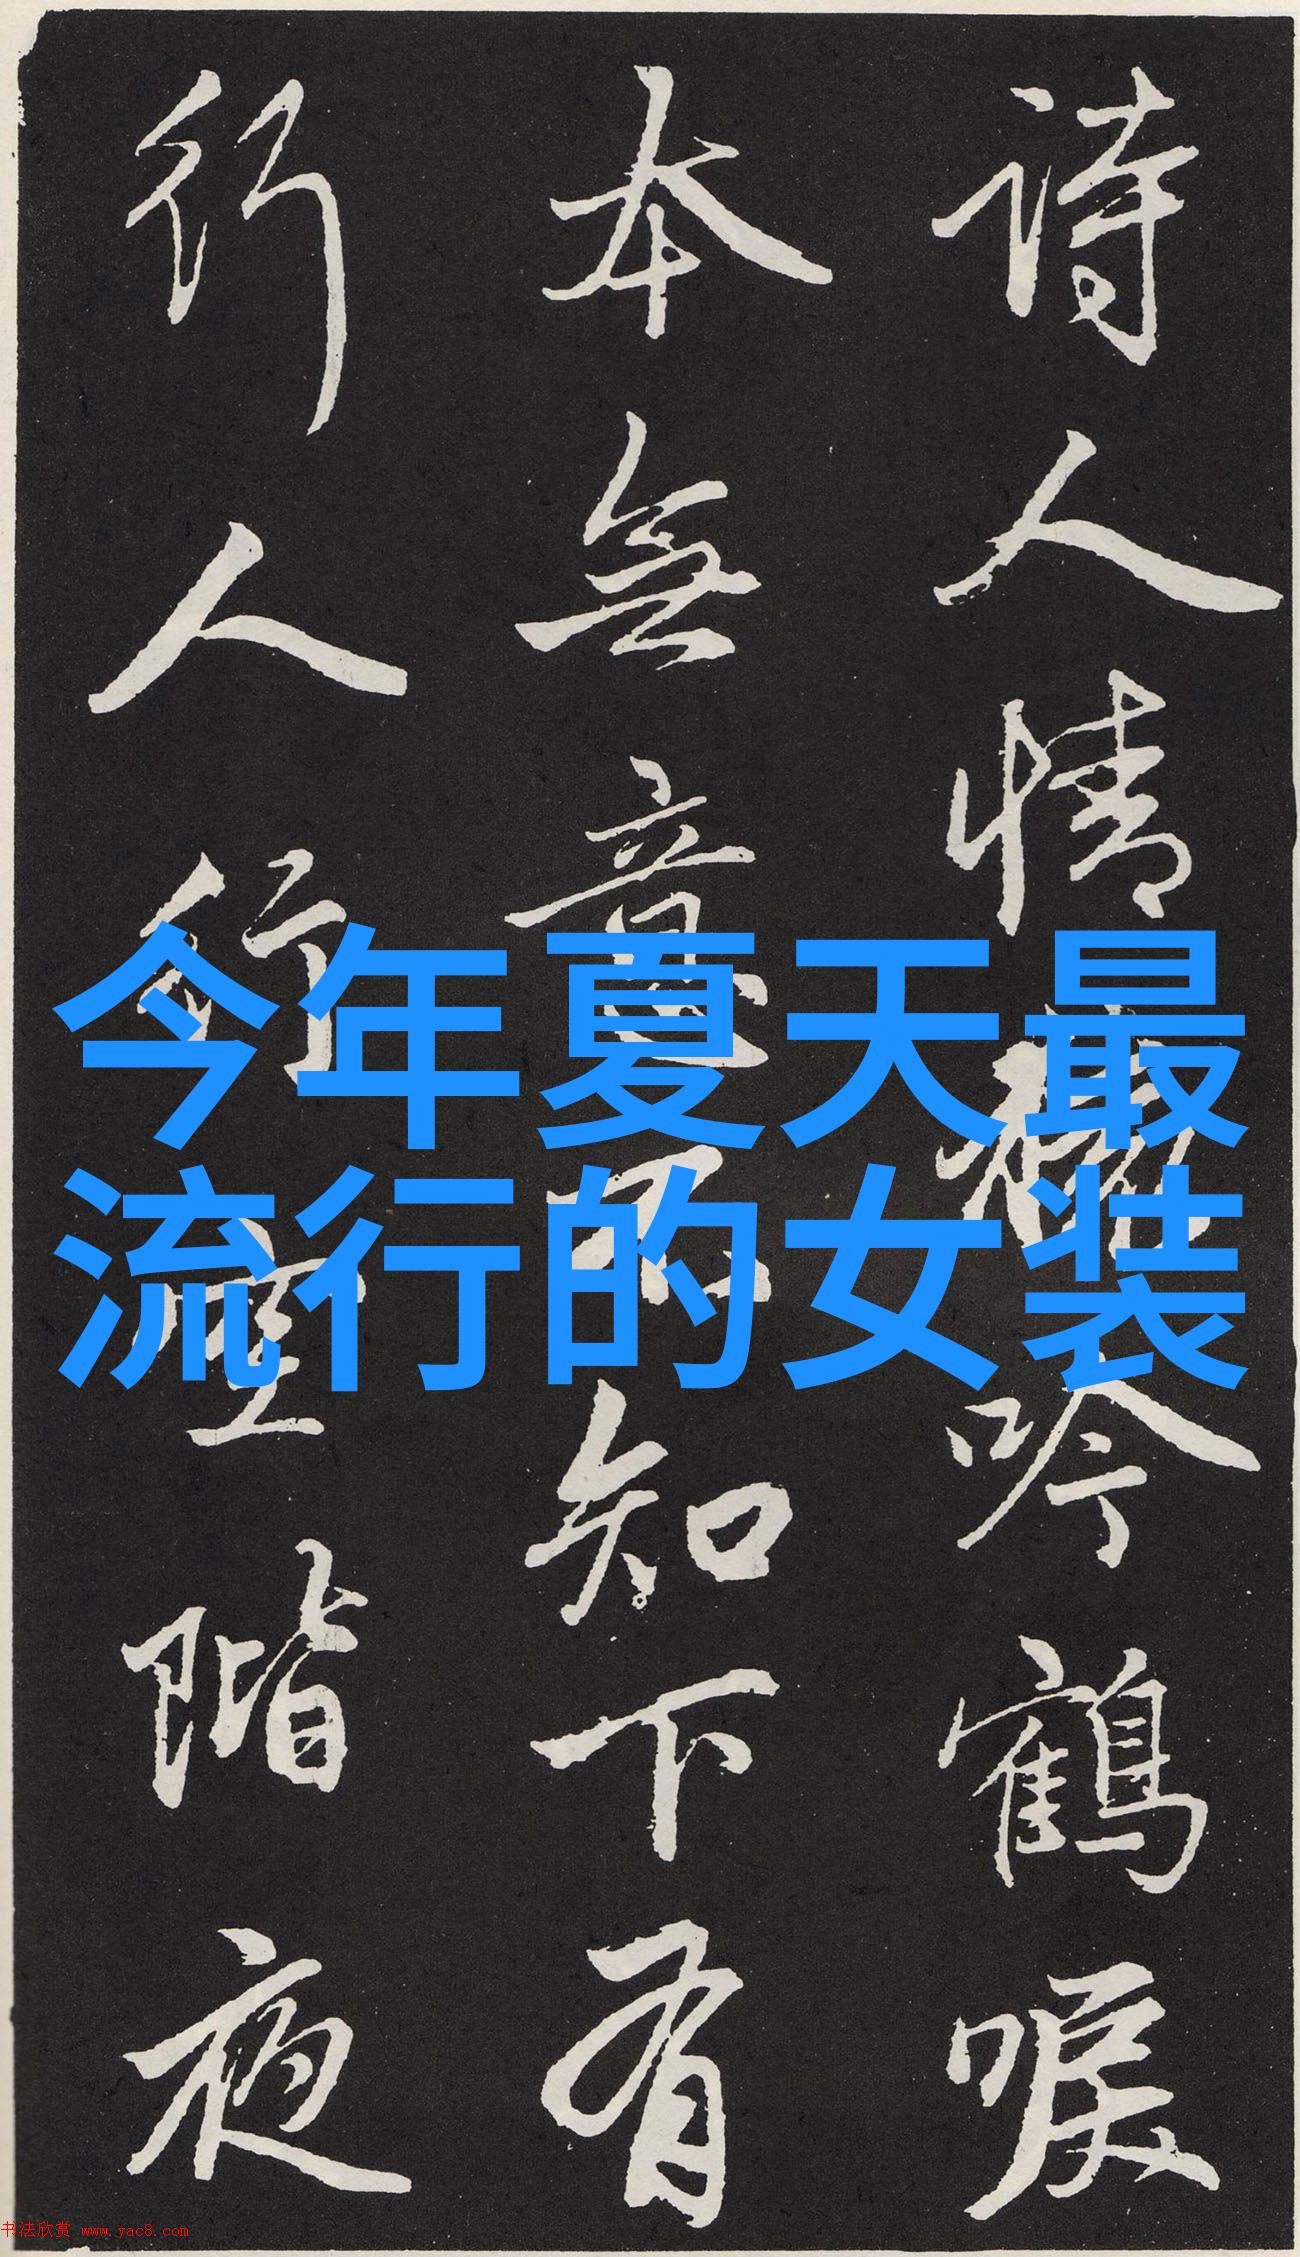 诗人情㯋吟鹤唳
本无意不知下有
行人行空阶夜
今年夏天最
流行的女装
书法欣赏 www.yac8.com